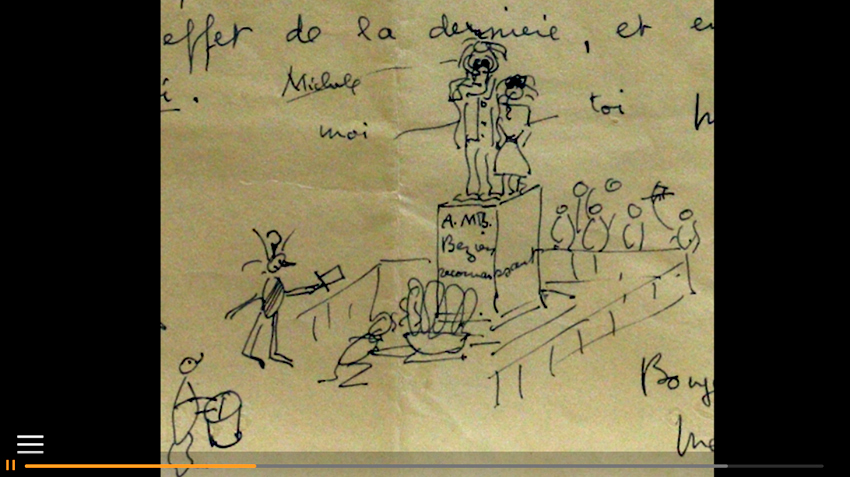 effet de la dernière, et en
Michele
moi
toi
A. MB.
reconnaissant